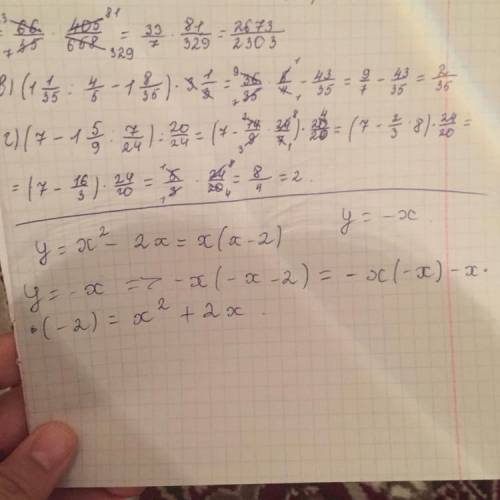 66/45 · 405/668 = 33/7 · 81/329 = 2673/2303
в) (1 1/35 : 4/5 − 1 8/35) · 3 1/2 = 36/35 · 5/4 − 43/35 = 9/7 − 43/35 = 2/35
г) (7 − 1 5/9 · 7/24) : 20/24 = (7 − 14/9 · 24/7) · 24/20 = (7 − 2/3 · 8) · 24/20 =
= (7 − 16/3) · 24/20 = 5/3 · 24/20 = 8/4 = 2.
y = x² − 2x = x(x−2) y = −x
y = −x => −x(−x−2) = −x(−x) −x·
·(−2) = x² + 2x.